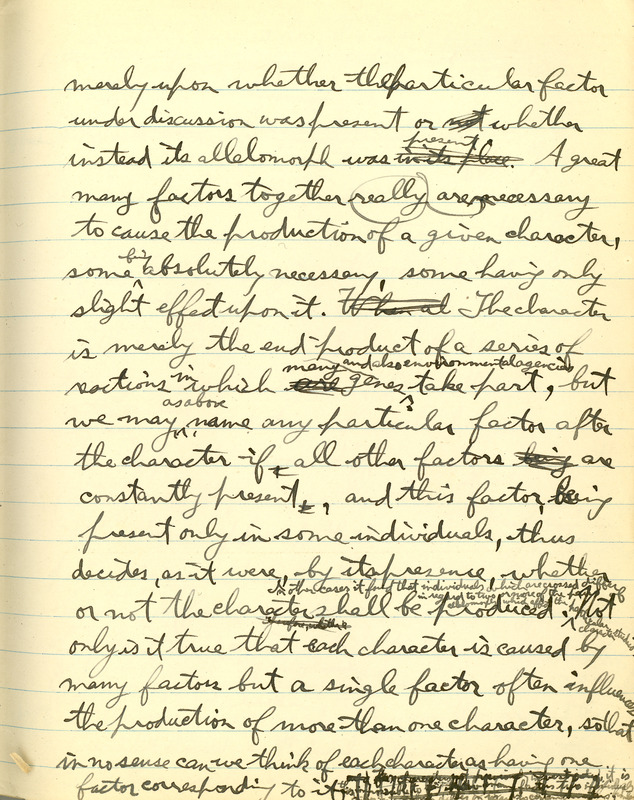 merely upon whether the particular factor
under discussion was present or not whether
present
instead its allelomorph was in its place. A great
many factors together really are necessary
to cause the production of a given character,
being
some absolutely necessary, some having only
slight effect upon it. When al The character
is merely the end product of a series of
many and also environmental agencies
reactions in which are genes take part, but
as above
we may, name any particular factor after
the character if, all other factors being are
constantly present, and this factor, being
present only in some individuals, thus
decides, as it were, by its presence, whether
In other cases it found that individuals, which are crossed differ
in regard to two or more of the
or not the character shall be produced. Not
only is it true that each character is caused by
many factors but a single factor often influences
the production of more than one character, so that
in no sense can we think of each character as having one
factor corresponding to it